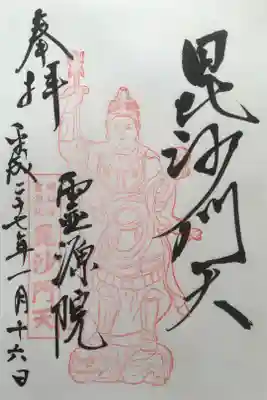 毘沙門天
霊源院
奉拝
平成二十七年一月十六日
毘沙門天